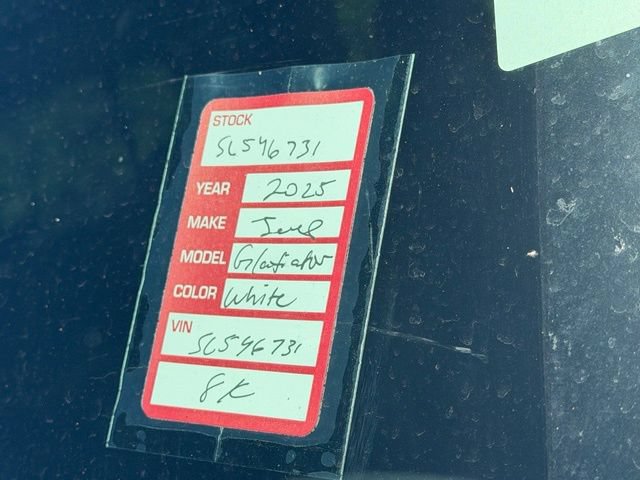 STOCK
SL546731
YEAR 2025
MAKE Jeep
MODEL Gladiator
COLOR White
VIN
SL546731
8K